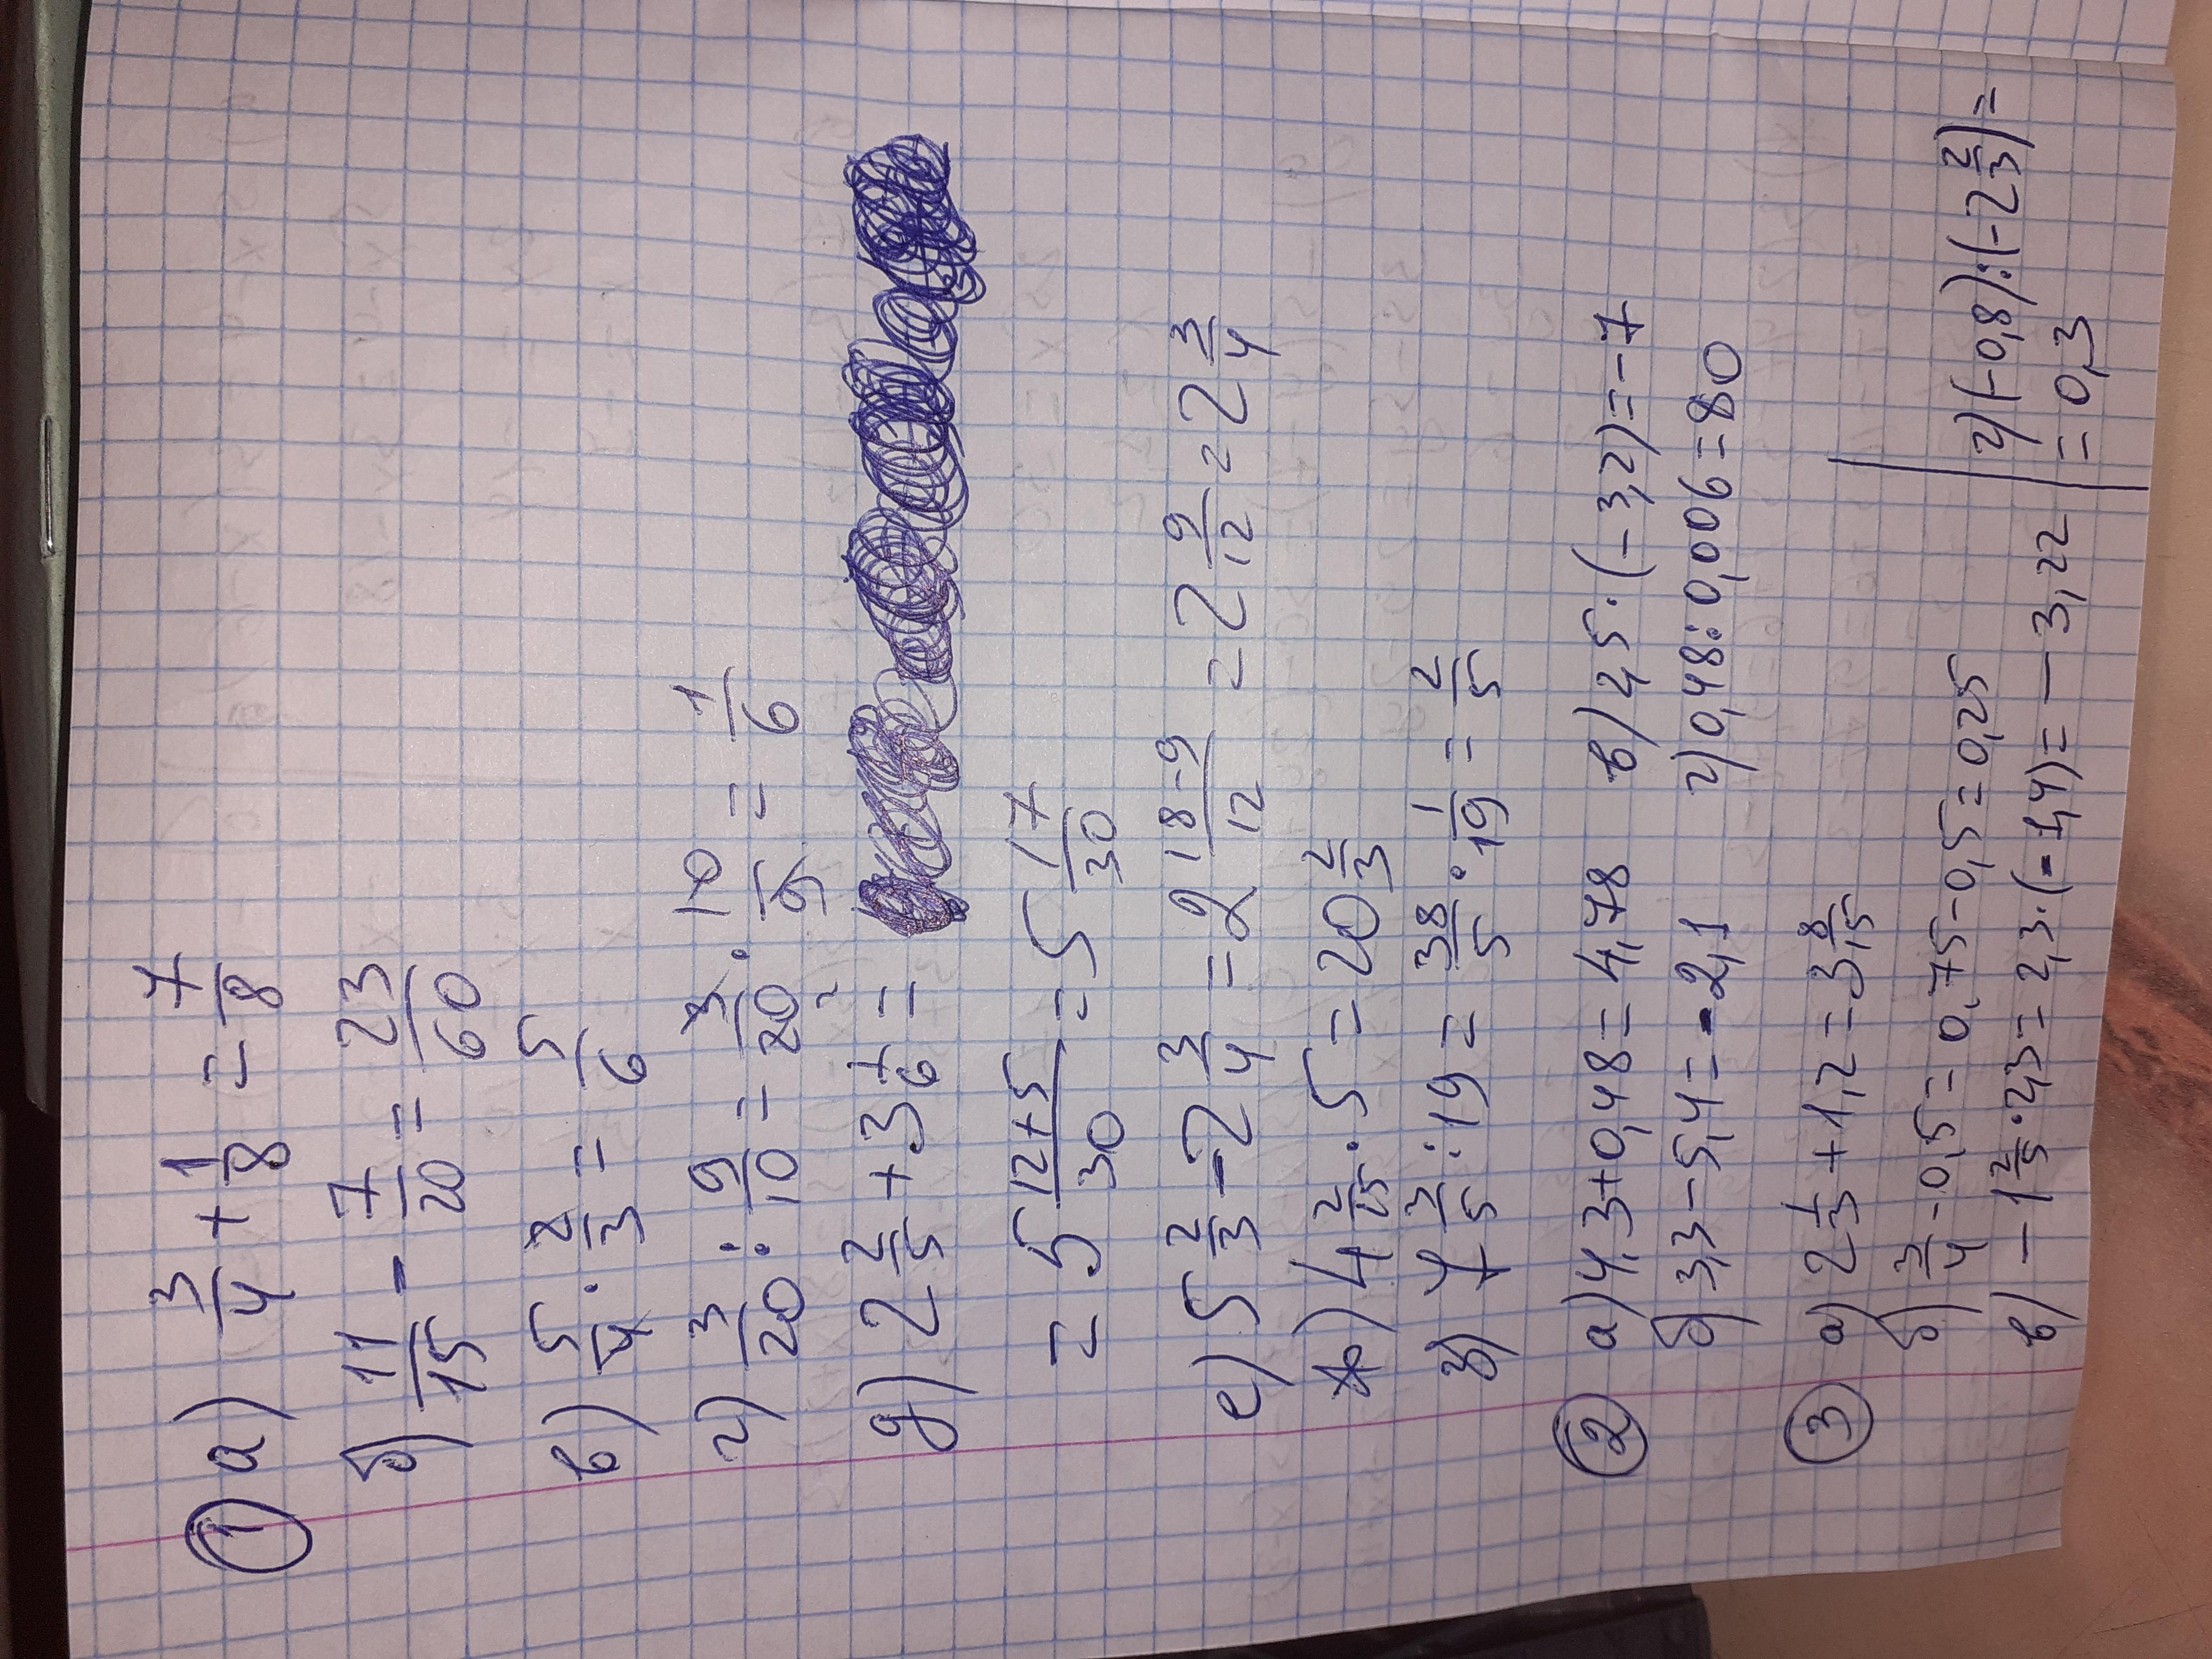 ① а) 3/4 + 1/8 = 7/8
б) 11/15 - 7/20 = 23/60
в) 5/4 · 2/3 = 5/6
г) 3/20 : 9/10 = 3/20 · 10/9 = 1/6
д) 2 2/5 + 3 1/6 =
= 5 (12+5)/30 = 5 17/30
е) 5 2/3 - 2 3/4 = 2 (18-9)/12 = 2 9/12 = 2 3/4
ж) 4 2/15 · 5 = 20 2/3
з) 7 3/5 : 19 = 38/5 · 1/19 = 2/5
② а) 4,3+0,48 = 4,78 в) 2,5·(-3,2) = -7
б) 3,3 - 5,4 = -2,1 г) 0,48:0,006 = 80
③ а) 2 1/3 + 1,2 = 3 8/15
б) 3/4 - 0,5 = 0,75-0,5 = 0,25
в) - 1 2/5 · 2,3 = 2,3·(-1,4) = - 3,22
г) (-0,8):(-2 2/3) =
= 0,3